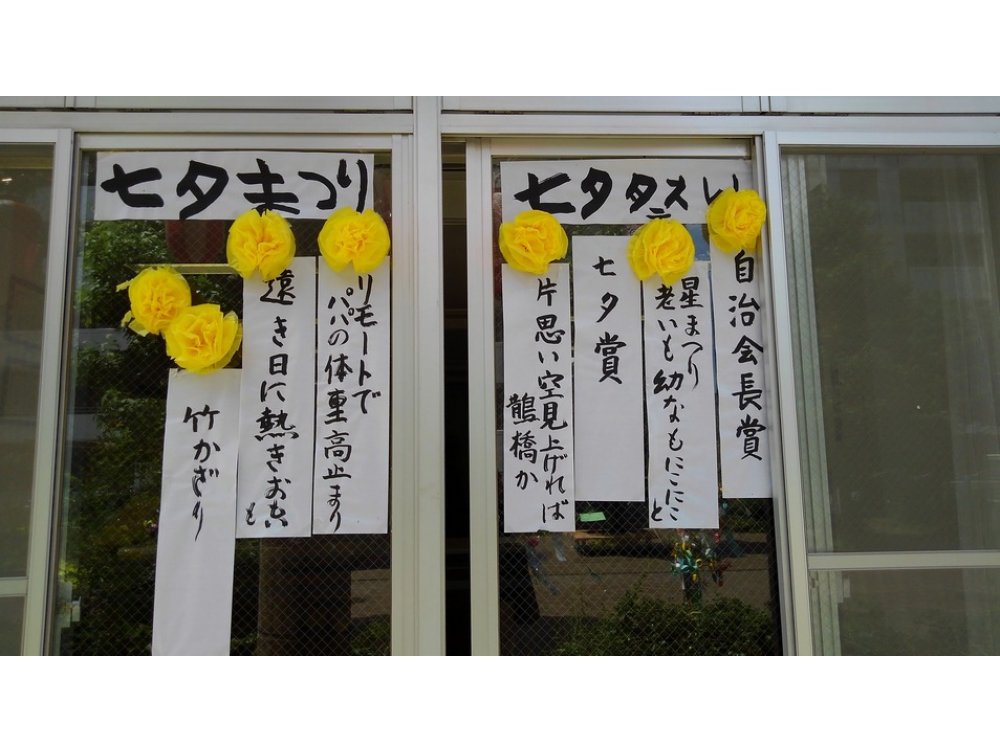 七夕まつり
七夕祭り
自治会長賞
星まつり
老いも幼なもにこにこと
七夕賞
片思い空見上げれば
鵲橋か
リモートで
パパの体重高止まり
遠き日に熱き
竹かざり